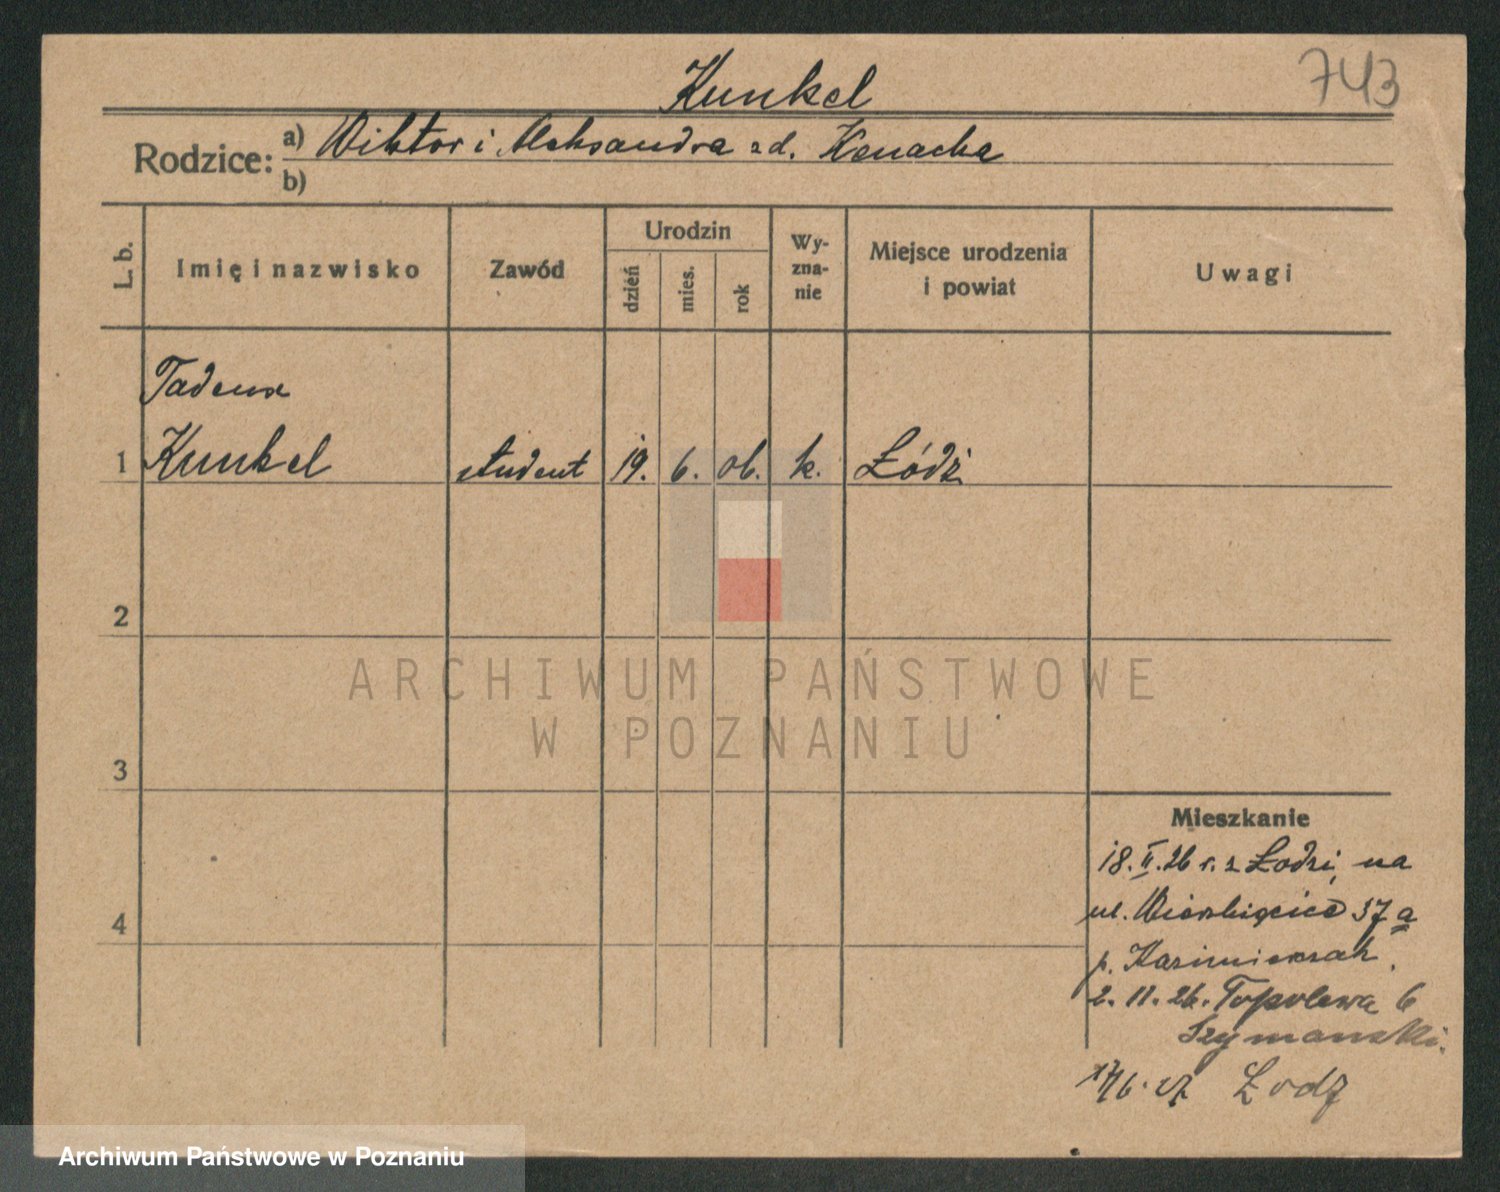 Kunkel
743
Rodzice: a) Wiktor i Aleksandra zd.
b)
L. b. Imię i nazwisko Zawód Urodzin dzień mies. rok Wyzna-nie Miejsce urodzenia i powiat Uwagi
Tadeusz
1 Kunkel student 19. 6. 06. k. Łódź
2
ARCHIWUM PAŃSTWOWE
W POZNANIU
3
Mieszkanie
18. II. 26 r. z Łodzi, na
ul. Wierzbięcice 37 a
4
p. Kazimierczak.
2. 11. 26. Topolowa 6
Szymanski.
17/6. 27. Łodz
Archiwum Państwowe w Poznaniu